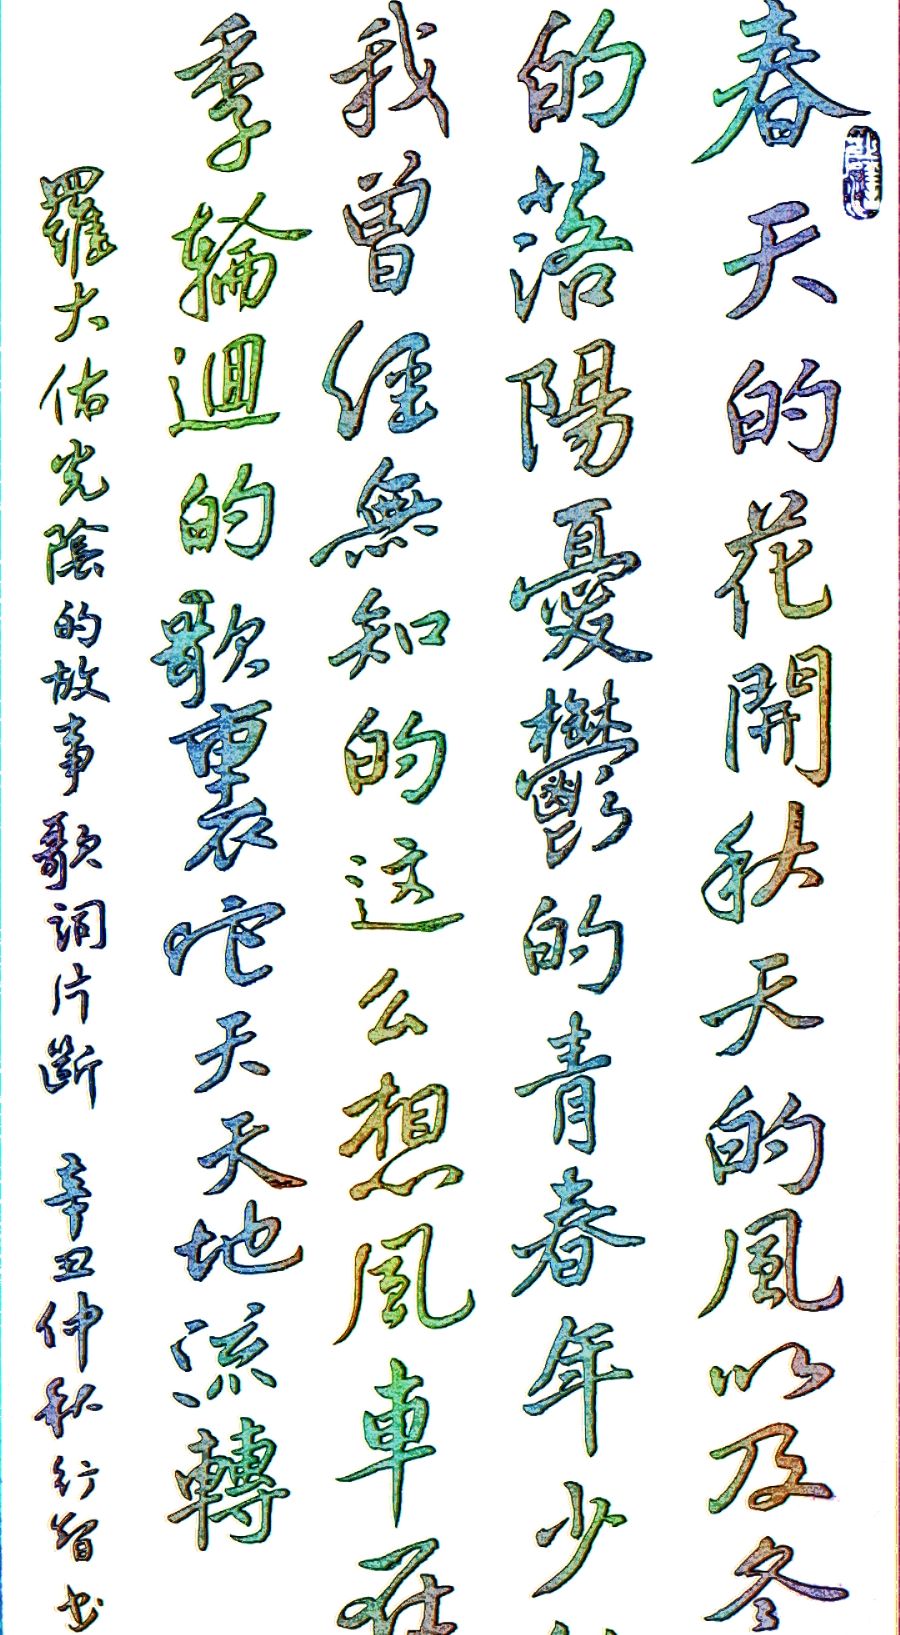 春天的花開秋天的風以及冬
的落陽憂鬱的青春年少
我曾经無知的这么想風車在
季輪迴的歌裏它天天地流轉
羅大佑光陰的故事歌詞片斷 辛丑仲秋行智书